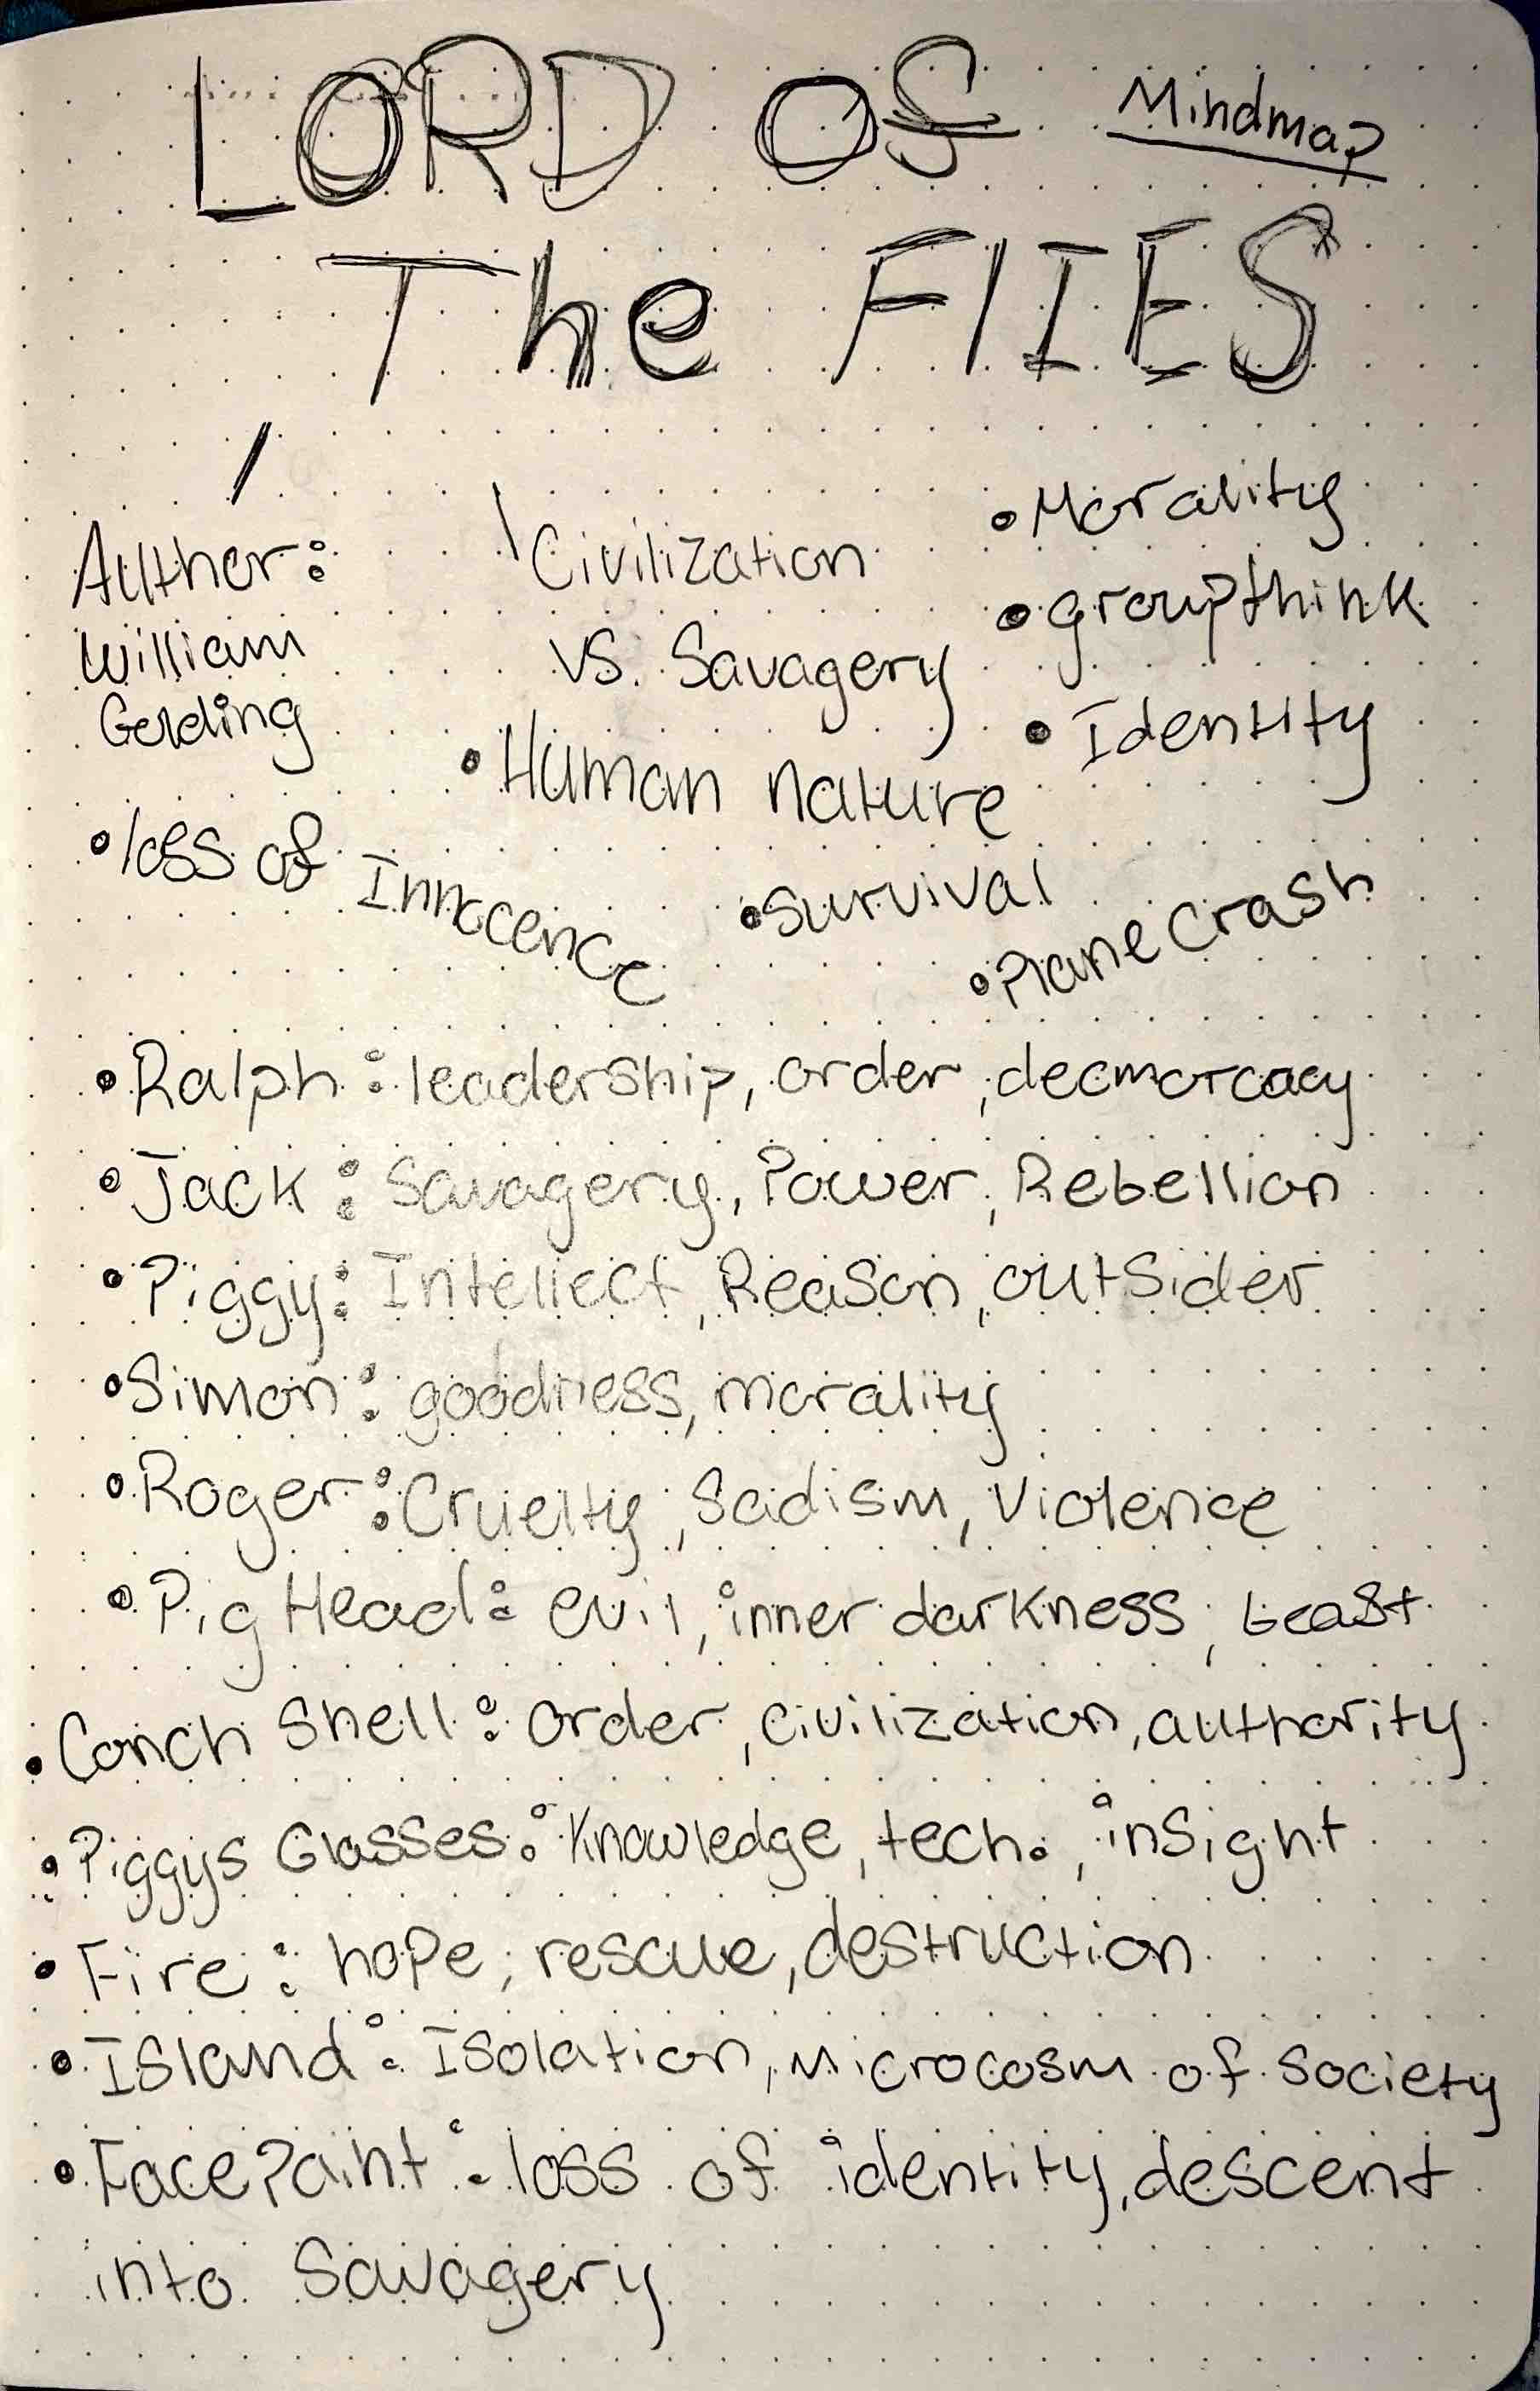 LORD OF Mindmap
The FlIES
Auther:
William
Golding
Civilization
vs. Savagery
• Human nature
• Morality
• groupthink
• Identity
• loss of Innocence
• survival
• Plane crash
• Ralph: leadership, order, decmorcacy
• Jack: Savagery, Power, Rebellion
• Piggy: Intellect, Reason, outsider
• Simon: goodness, morality
• Roger: Cruelty, Sadism, Violence
• Pig Head: evil, inner darkness, beast
• Conch Shell: order, civilization, authority
• Piggys Glasses: Knowledge, tech., insight
• Fire: hope, rescue, destruction
• Island: Isolation, Microcosm of society
• Face Paint: loss of identity, descent
into Savagery